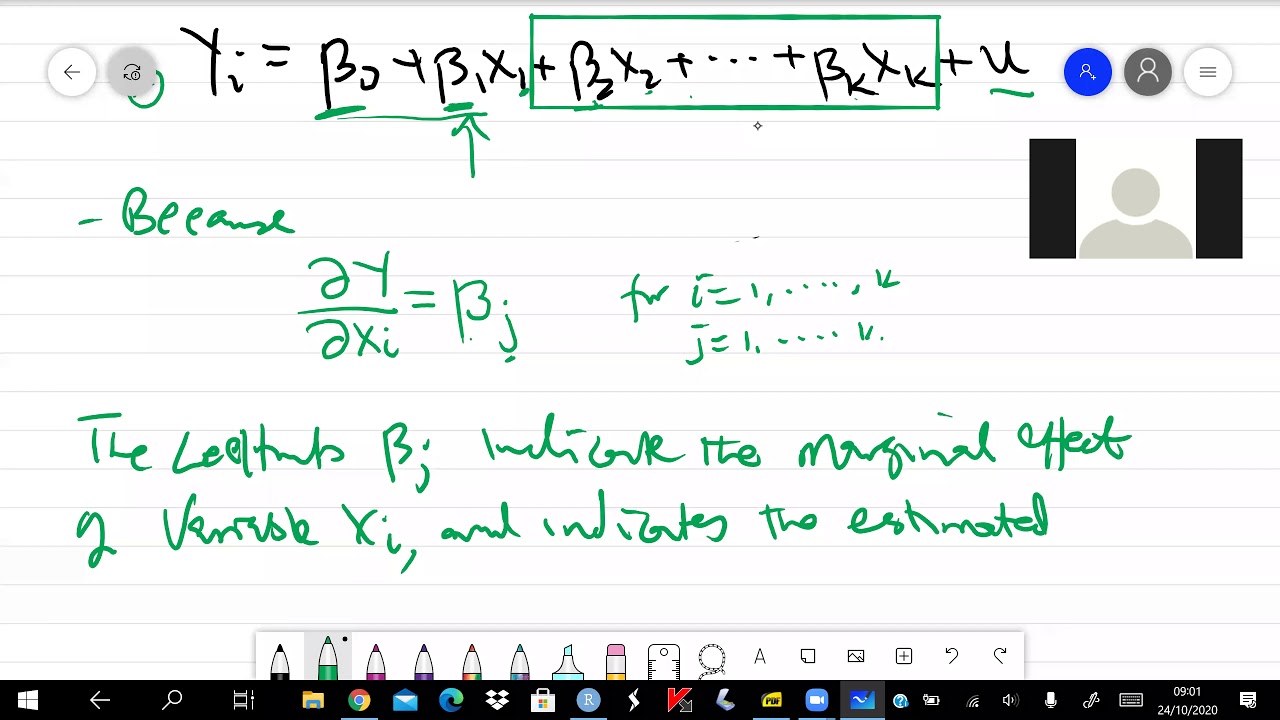 Yi = β0 + β1X1 + β2X2 + ... + βKXK + u
- Because
∂Y/∂Xi = βj for i = 1, ...., k
j = 1, ..... k.
The βj indicate the marginal effect
of variable Xi, and indicates the estimated
A
R
PDF
09:01
24/10/2020